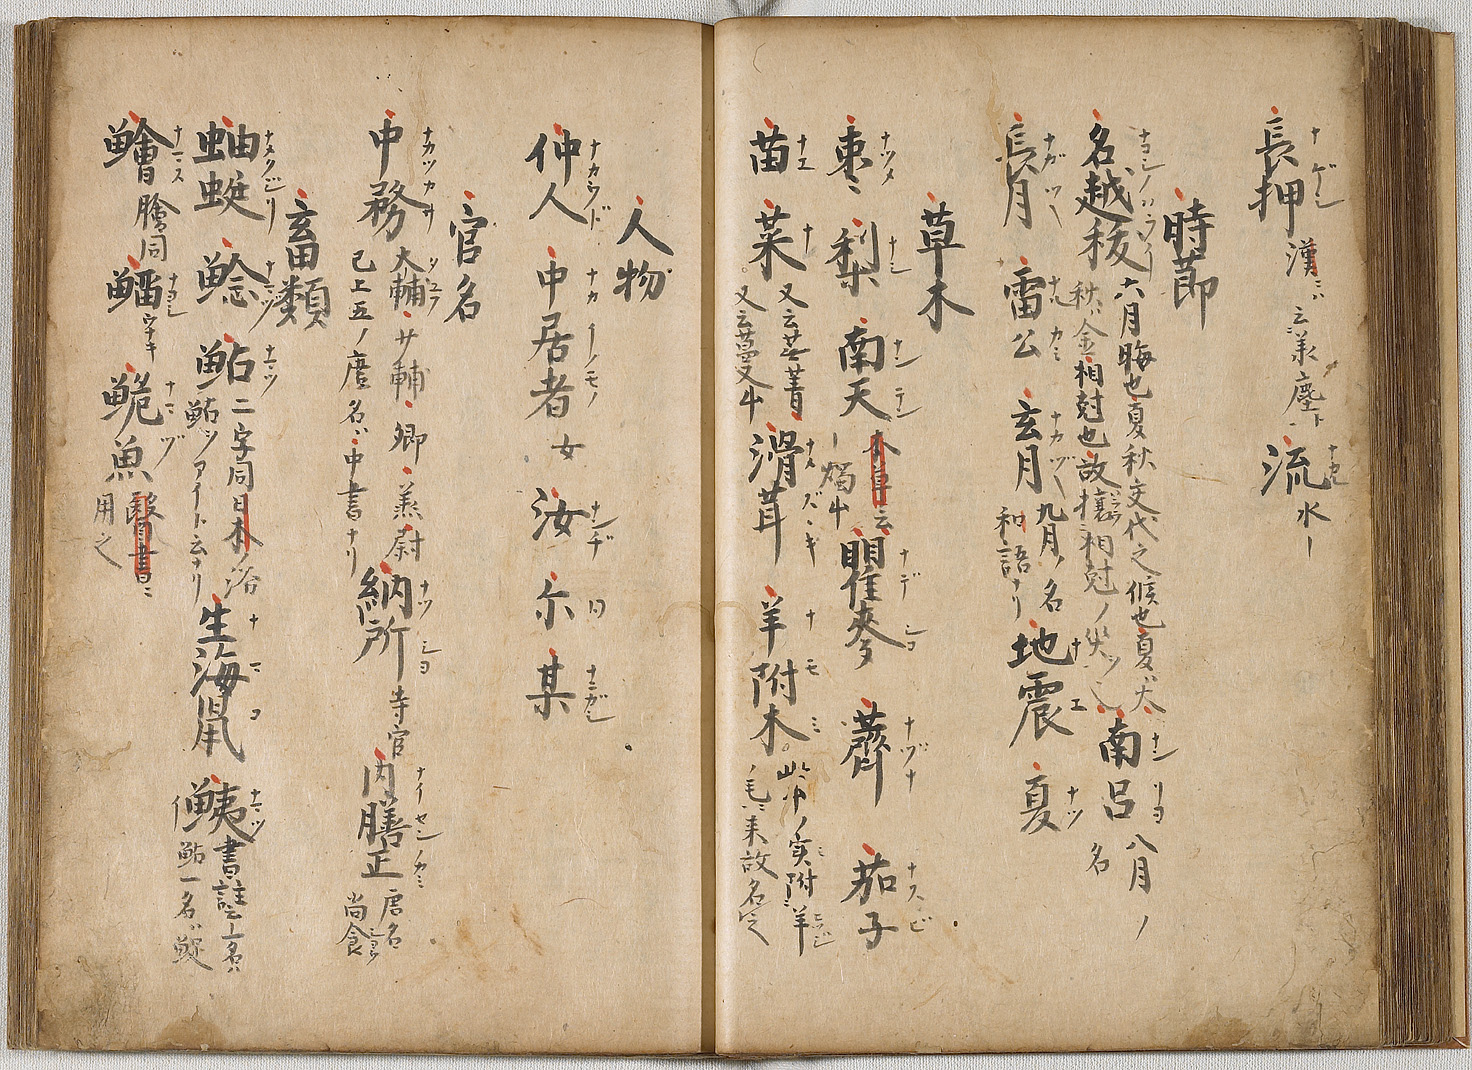 長押 ナゲシ 漢ニハ云承塵ト 流水 ナガレ
時節
名越秡 ナコシノハラヘ 六月晦也夏秋交代之候也夏ハ火
秋ハ金相尅也故攘相尅ノ災ヲ 南呂 ナンリヨ 八月ノ名
長月 ナガツキ 雷公 ナルカミ 玄月 ナカヅキ 九月ノ名
和語ナリ 地震 ナエ 夏 ナツ
草木
棗 ナツメ 梨 ナシ 南天 ナンテン 本草云
南燭 瞿麥 ナデシコ 薺 ナヅナ 茄子 ナスビ
苗 ナエ 菜 ナ 又云蕪菁
又云蔓 滑茸 ナメズヽキ 羊附木 ナモミ 此中ノ実附羊
ノ毛ニ来故名之
人物
仲人 ナカウド 中居者 ナカイノモノ 女 汝 ナンヂ 尓 同 某 ナニガシ
官名
中務 ナカツカサ 大輔 タユフ 少輔 卿 丞 尉
已上五ノ唐名ハ中書ナリ 納所 ナツシヨ 寺官 内膳正 ナイゼンノカミ 唐名
尚食
畜類
蚰蜒 ナメクジリ 鯰 ナマヅ 鮎 ナマヅ 二字同日本ノ俗
鮎ヲアイト云ナリ 生海鼠 ナマコ 鮧 ナマヅ 書註一名ハ
鮎一名ハ
鱠 ナマス 膾同 鰡 ナヨシ 鮠魚 ナマヅ 醫書ニ
用之